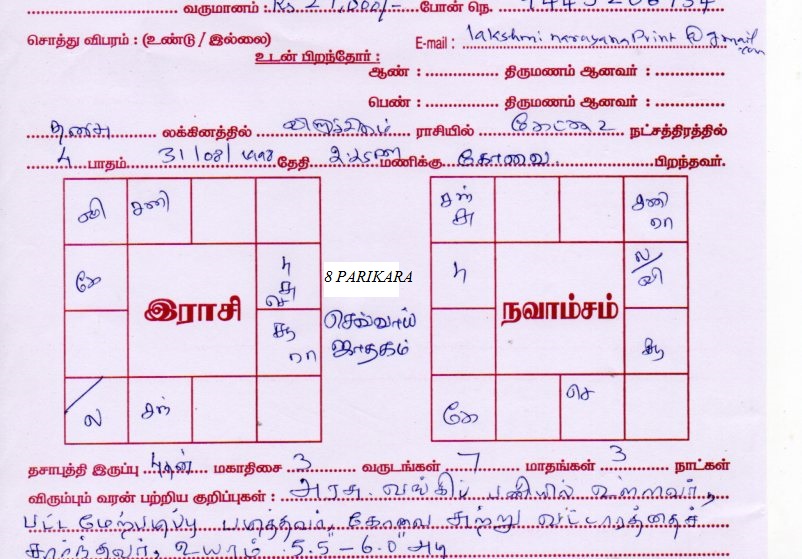 வருமானம் : Rs 21,000/- போன் நெ.
சொத்து விபரம் : (உண்டு / இல்லை) E-mail : lakshmi narayanaprint @gmail.com
உடன் பிறந்தோர் :
ஆண் : திருமணம் ஆனவர் :
பெண் : திருமணம் ஆனவர் :
தனுசு லக்கினத்தில் விருச்சிகம் ராசியில் கேட்டை நட்சத்திரத்தில்
4 பாதம் 31/08/1998 தேதி மணிக்கு கோவை பிறந்தவர்.
வி சனி
கே
பு
சு
செ
சூ
ரா
ல சந்
இராசி
8 PARIKARA
செவ்வாய்
ஜாதகம்
சந்
சு
சனி
ரா
பு
ல/வி
சூ
கே செ
நவாம்சம்
தசாபுத்தி இருப்பு புதன் மகாதிசை 3 வருடங்கள் 7 மாதங்கள் 3 நாட்கள்
விரும்பும் வரன் பற்றிய குறிப்புகள் : அரசு வங்கிப் பணியில் உள்ளவர்,
பட்ட மேற்படிப்பு படித்தவர், கோவை சுற்று வட்டாரத்தைச்
சார்ந்தவர், உயரம் 5.5" – 6.0" அடி